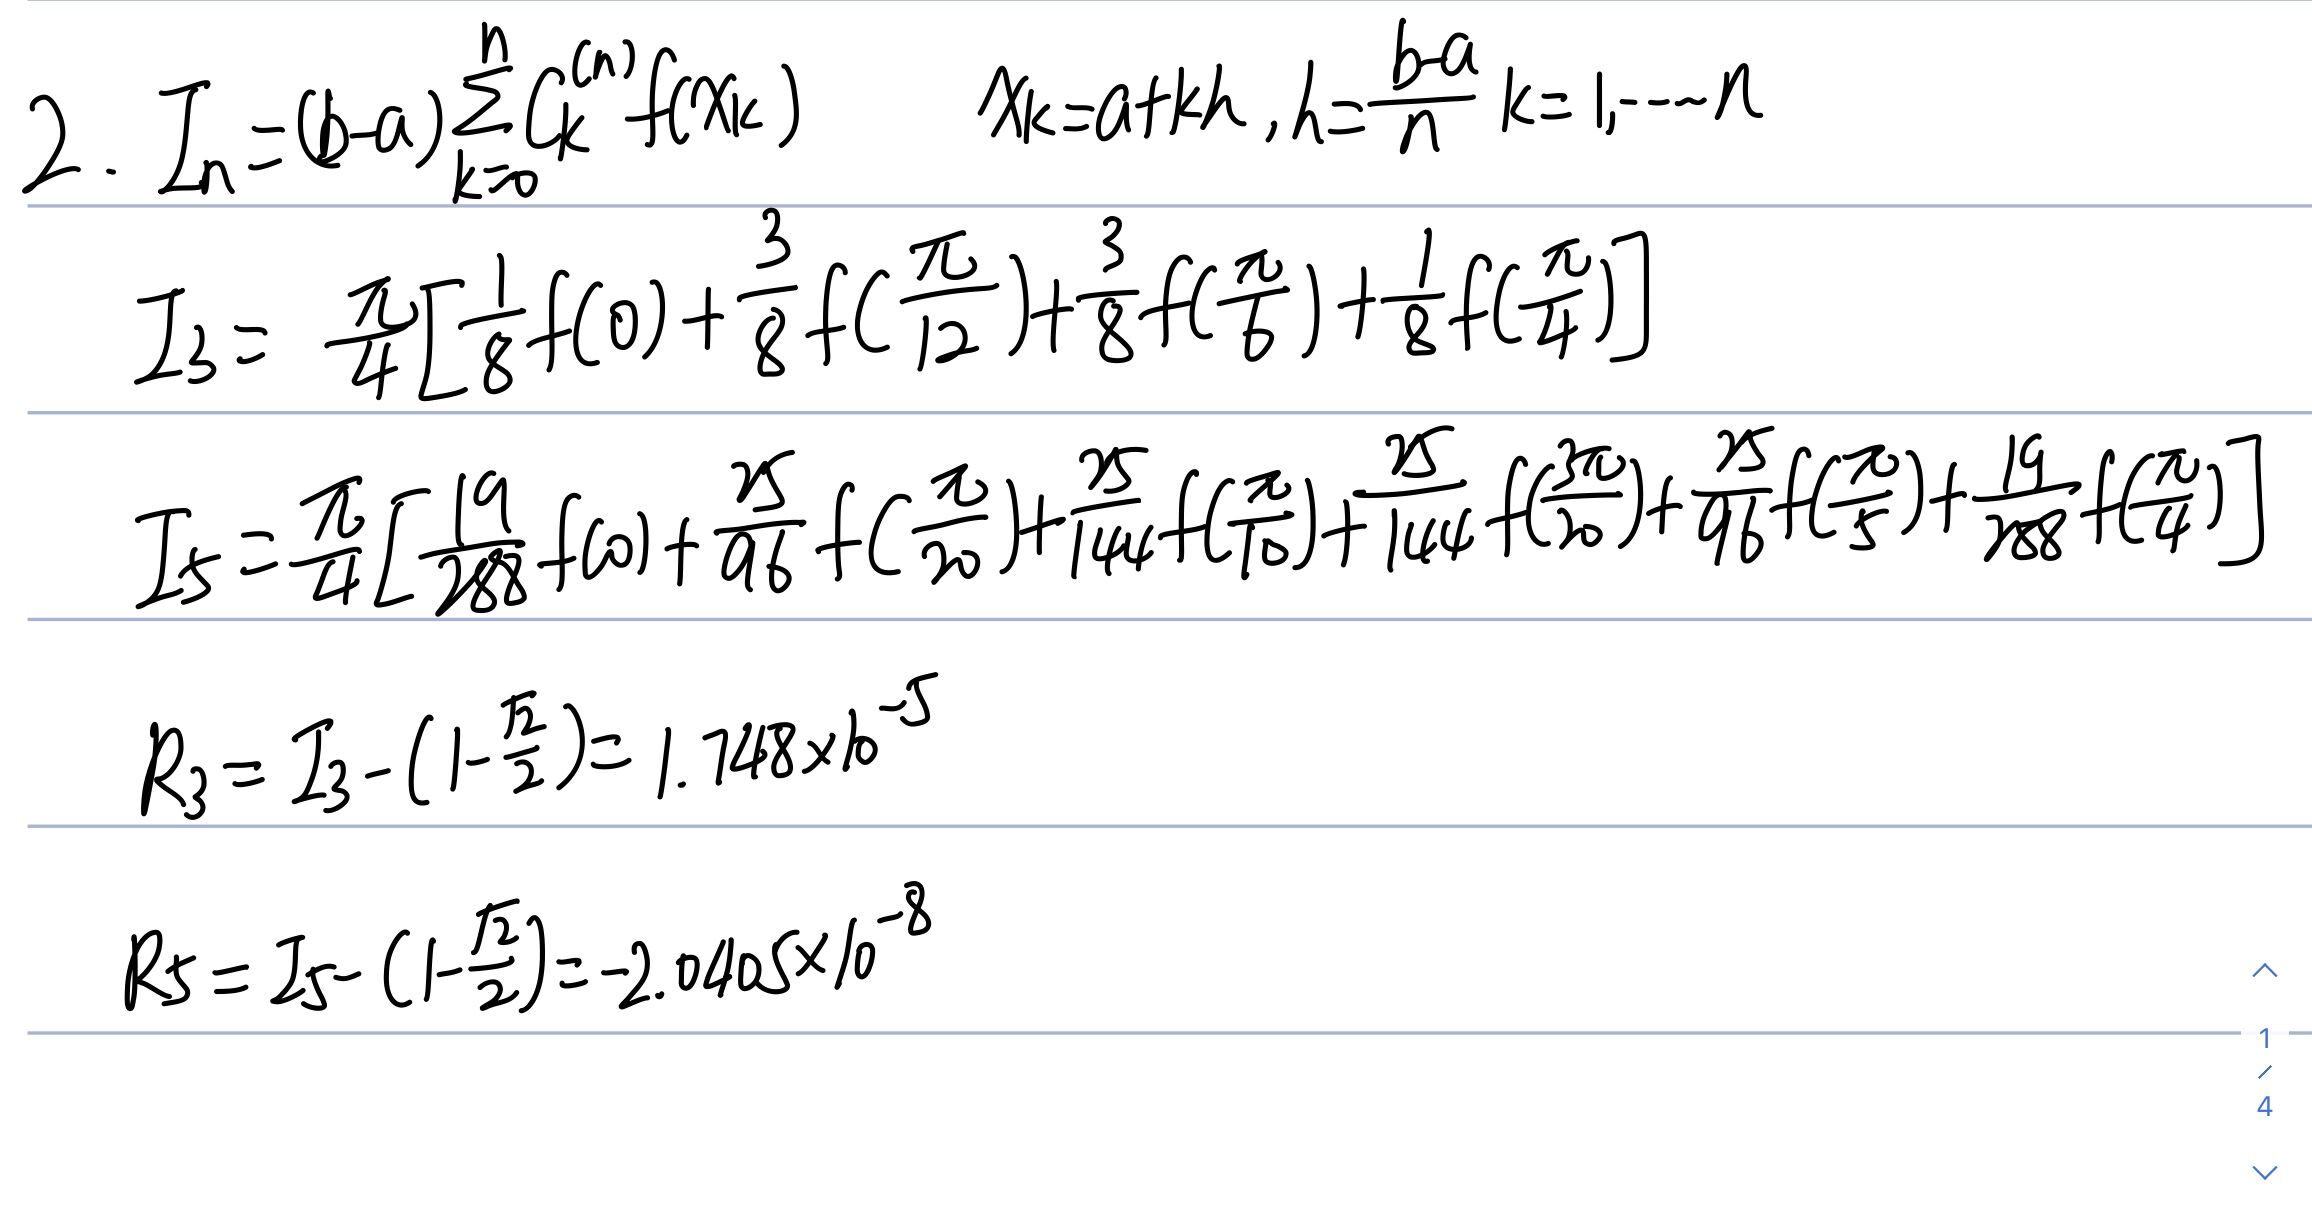 2. Iₙ = (b-a) ∑_{k=0}^{n} C_k^{(n)} f(x_k)   x_k = a+kh, h = \frac{b-a}{n} k = 1, ---- n
I₃ = \frac{π}{4} [ \frac{1}{8} f(0) + \frac{3}{8} f(\frac{π}{12}) + \frac{3}{8} f(\frac{π}{6}) + \frac{1}{8} f(\frac{π}{4}) ]
I₅ = \frac{π}{4} [ \frac{19}{288} f(0) + \frac{25}{96} f(\frac{π}{20}) + \frac{25}{144} f(\frac{π}{10}) + \frac{25}{144} f(\frac{3π}{20}) + \frac{25}{96} f(\frac{π}{5}) + \frac{19}{288} f(\frac{π}{4}) ]
R₃ = I₃ - (1 - \frac{√2}{2}) = 1.748×10^{-5}
R₅ = I₅ - (1 - \frac{√2}{2}) = -2.0405×10^{-8}
1
/
4